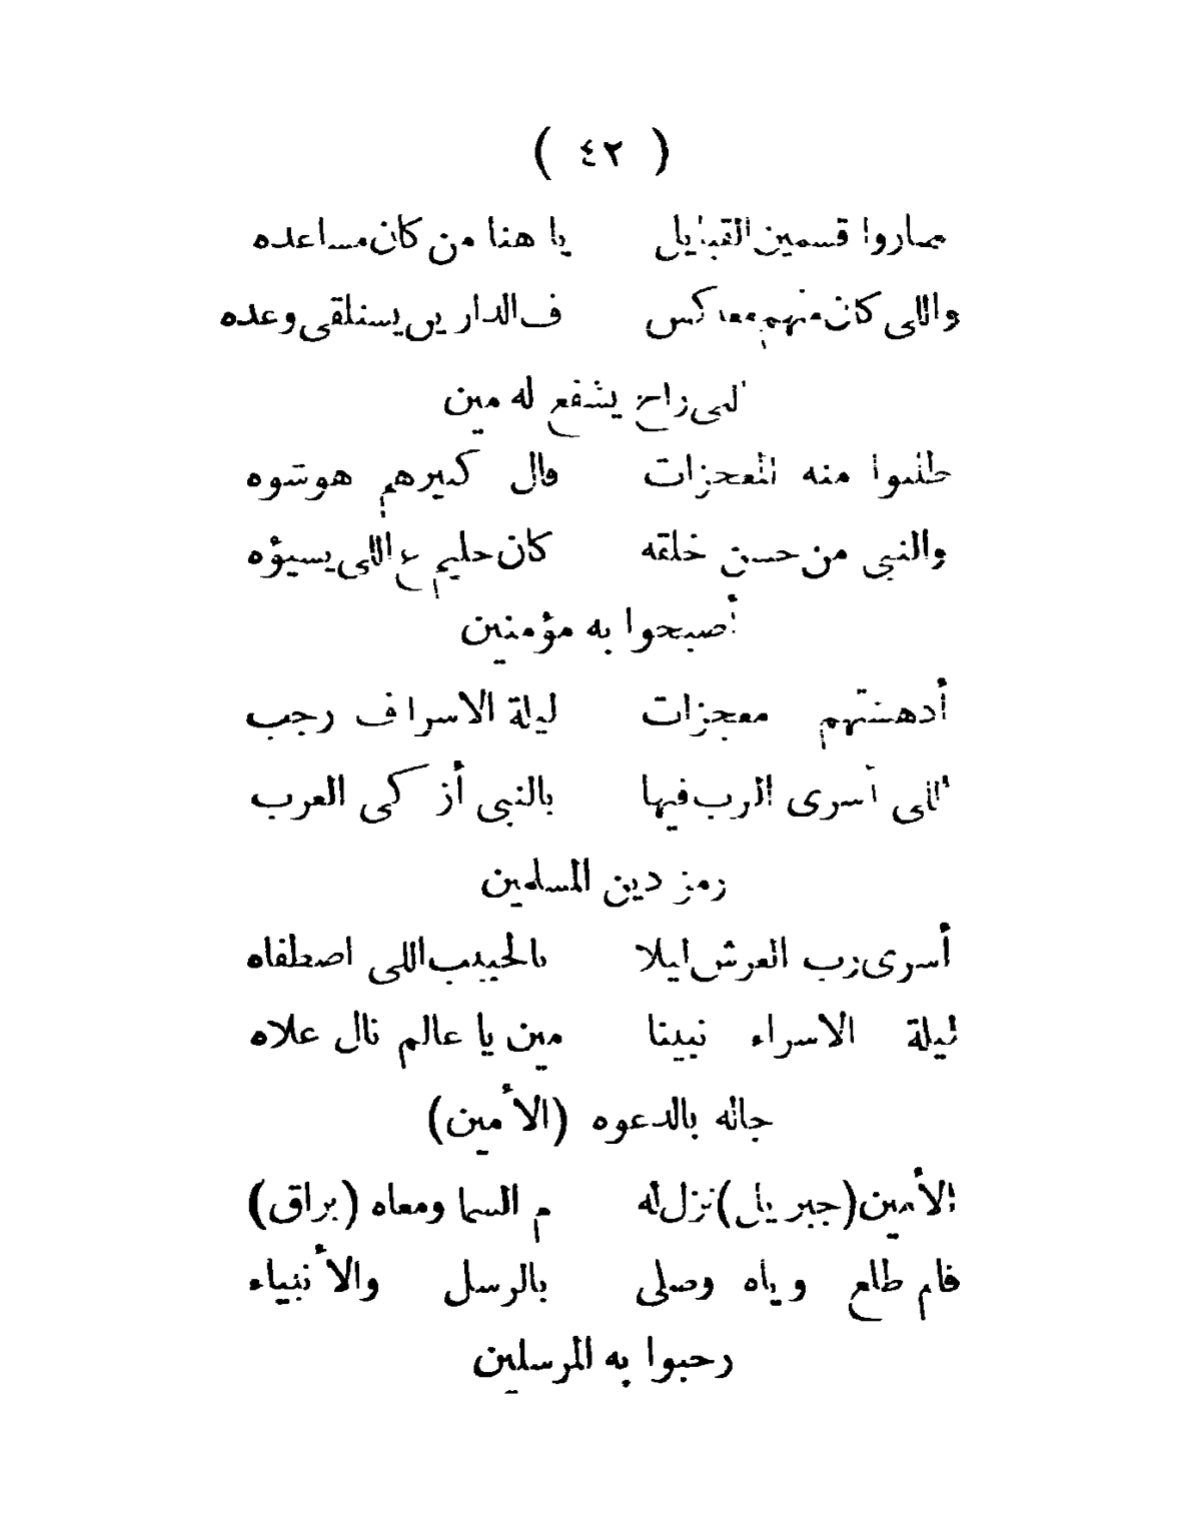 ( ٤٢ )
صاروا قسمين القبايل يا هنا من كان مساعده
واللى كان منهم معاكس ف الدارين يستلقى وعده
اللى راح يشفع له مين
طلبوا منه المعجزات قال كبيرهم هوشوه
والنبى من حسن خلقه كان حليم ع اللى يسيؤه
أصبحوا به مؤمنين
أدهشتهم معجزات ليلة الاسرا ف رجب
اللى أسرى الرب فيها بالنبى أزكى العرب
رمز دين المسلمين
أسرى رب العرش ليلا بالحبيب اللى اصطفاه
ليلة الاسراء نبينا مين يا عالم نال علاه
جاله بالدعوه (الأمين)
الأمين (جبريل) نزل له م السما ومعاه (براق)
قام طلع وياه وصلى بالرسل والأنبياء
رحبوا به المرسلين